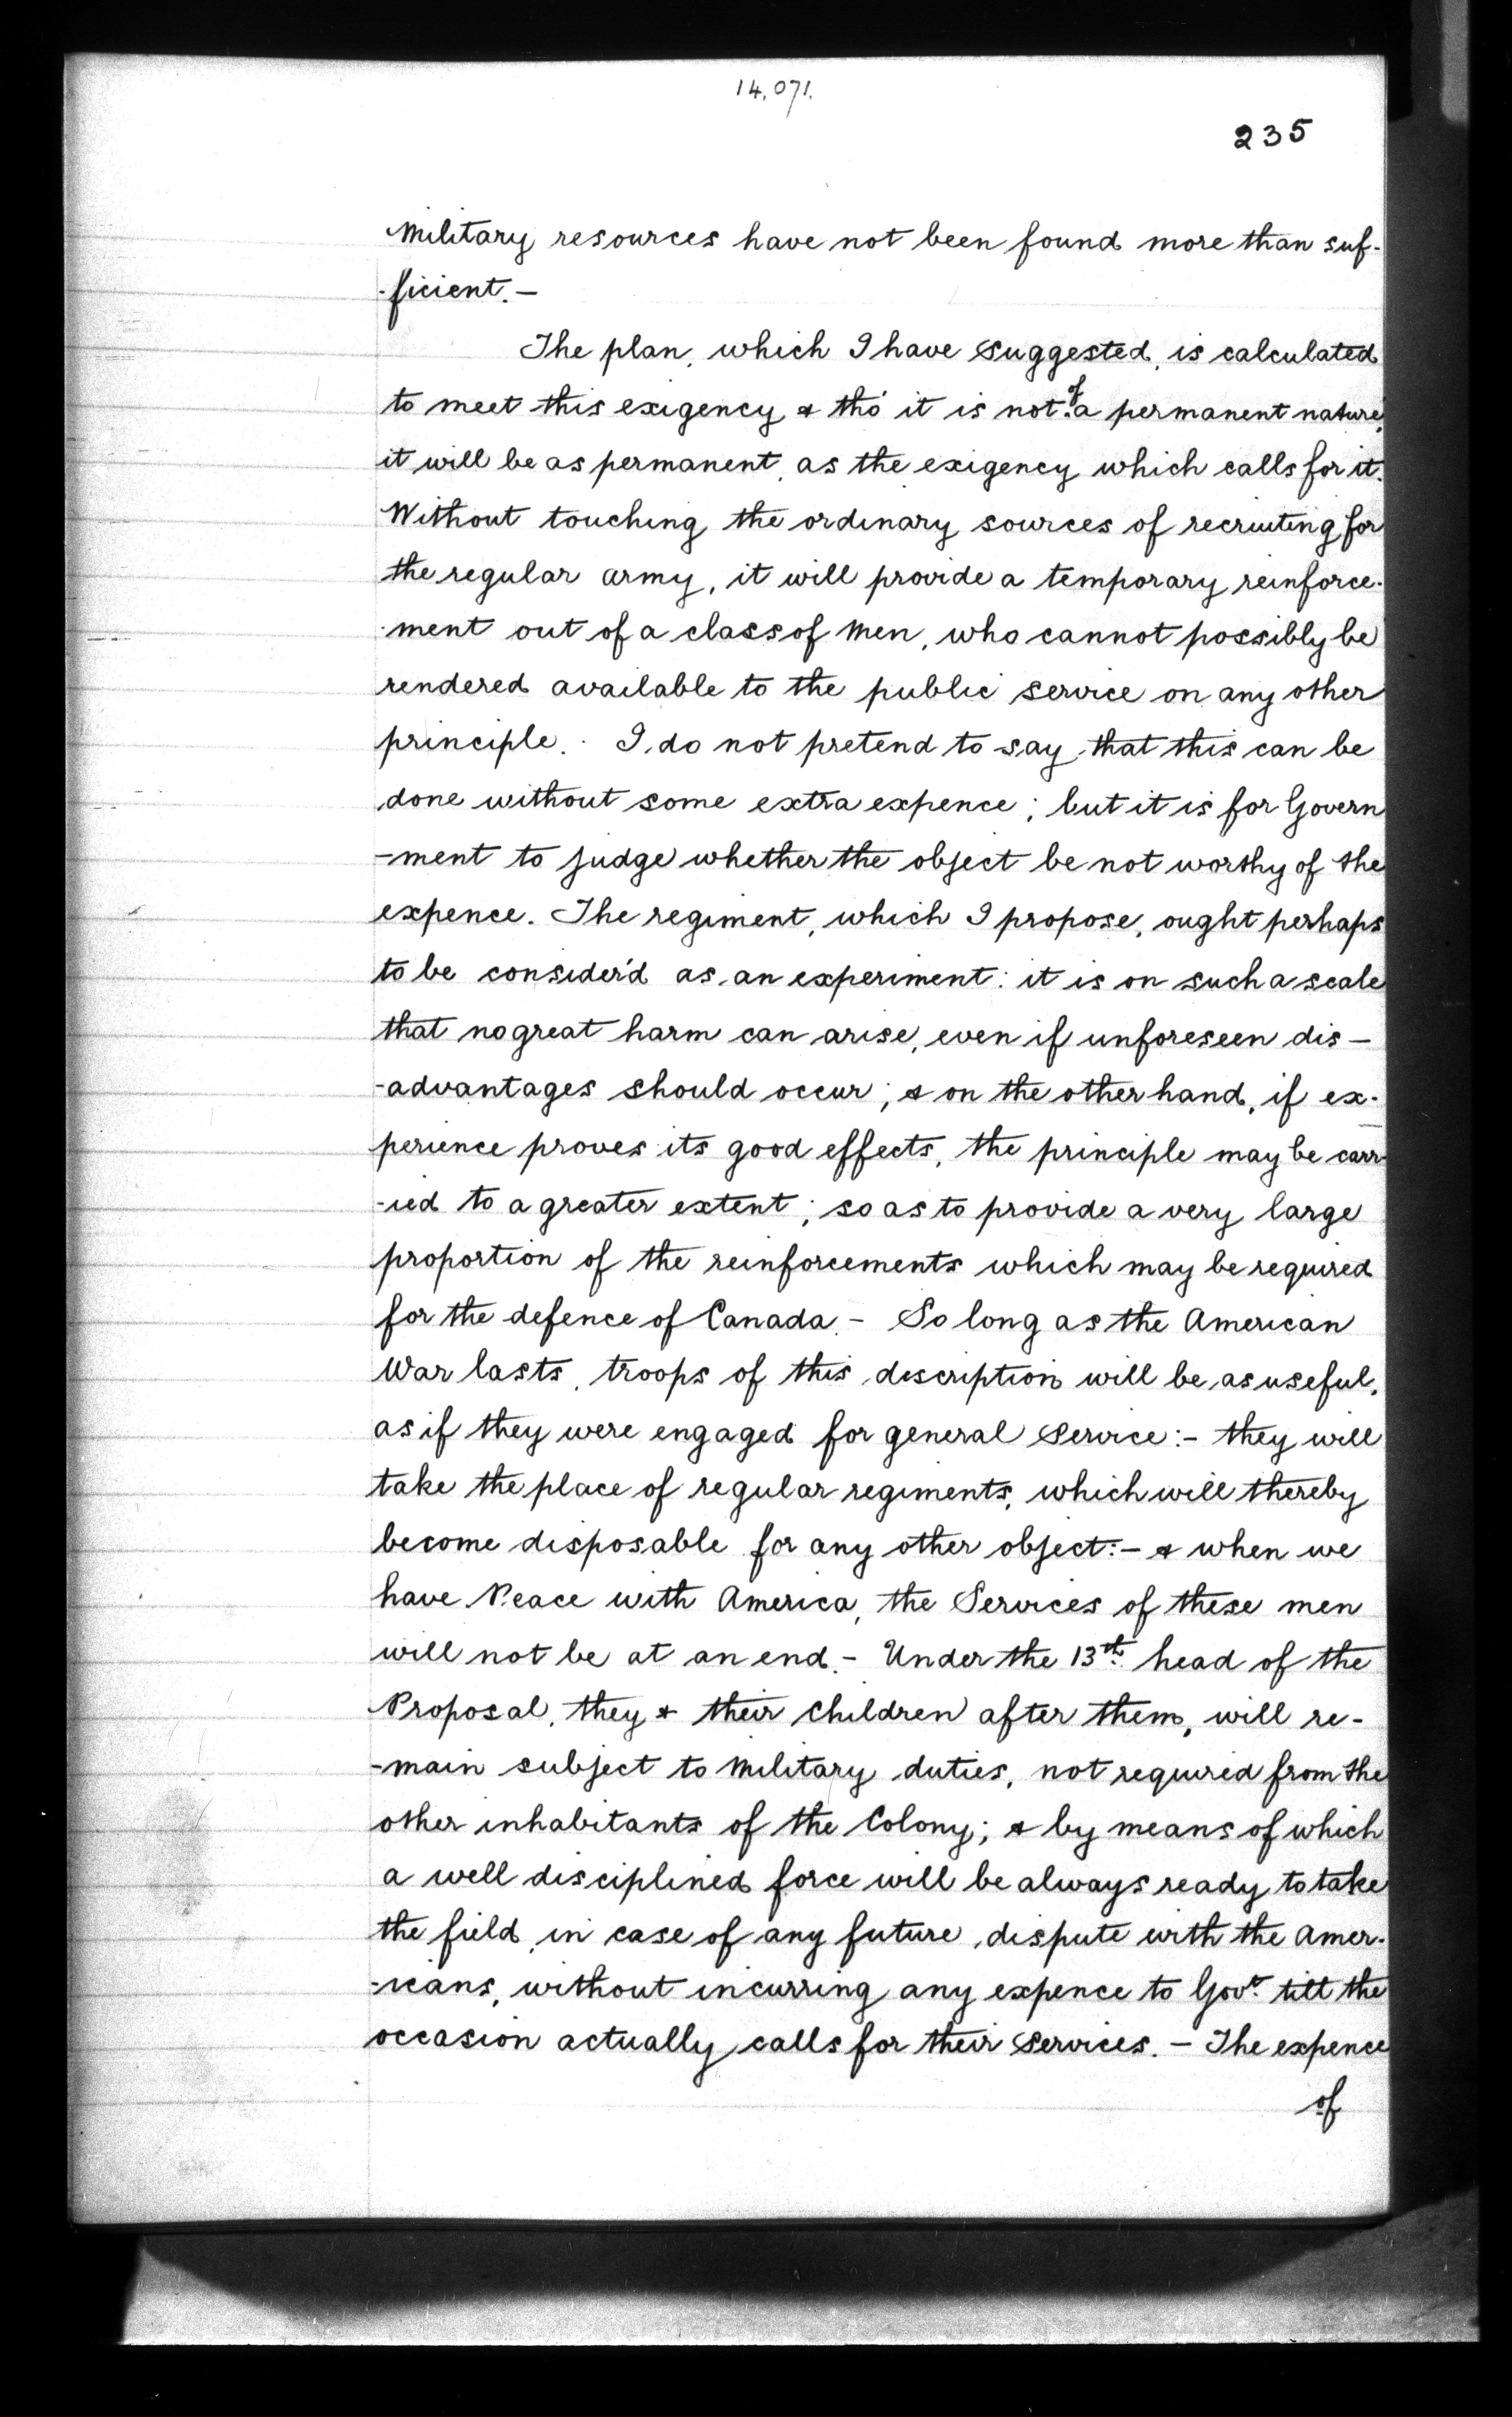 14,071.
235
Military resources have not been found more than suf-
-ficient. –
The plan, which I have suggested, is calculated
to meet this exigency & tho' it is not of a permanent nature,
it will be as permanent, as the exigency which calls for it.
Without touching the ordinary sources of recruiting for
the regular army, it will provide a temporary reinforce-
-ment out of a class of Men, who cannot possibly be
rendered available to the public service on any other
principle. I do not pretend to say that this can be
done without some extra expence; but it is for Govern
-ment to judge whether the object be not worthy of the
expence. The regiment, which I propose, ought perhaps
to be consider'd as an experiment: it is on such a scale
that no great harm can arise, even if unforeseen dis-
-advantages should occur; & on the other hand, if ex-
perience proves its good effects, the principle may be carr
-ied to a greater extent; so as to provide a very large
proportion of the reinforcements which may be required
for the defence of Canada. – So long as the American
War lasts, troops of this description will be as useful,
as if they were engaged for general Service:– they will
take the place of regular regiments, which will thereby
become disposable for any other object:– & when we
have Peace with America, the Services of these men
will not be at an end. – Under the 13th. head of the
Proposal, they & their Children after them, will re-
-main subject to Military duties, not required from the
other inhabitants of the Colony; & by means of which
a well disciplined force will be always ready to take
the field, in case of any future dispute with the Amer-
-icans, without incurring any expence to Govt. till the
occasion actually calls for their Services. – The expence
of